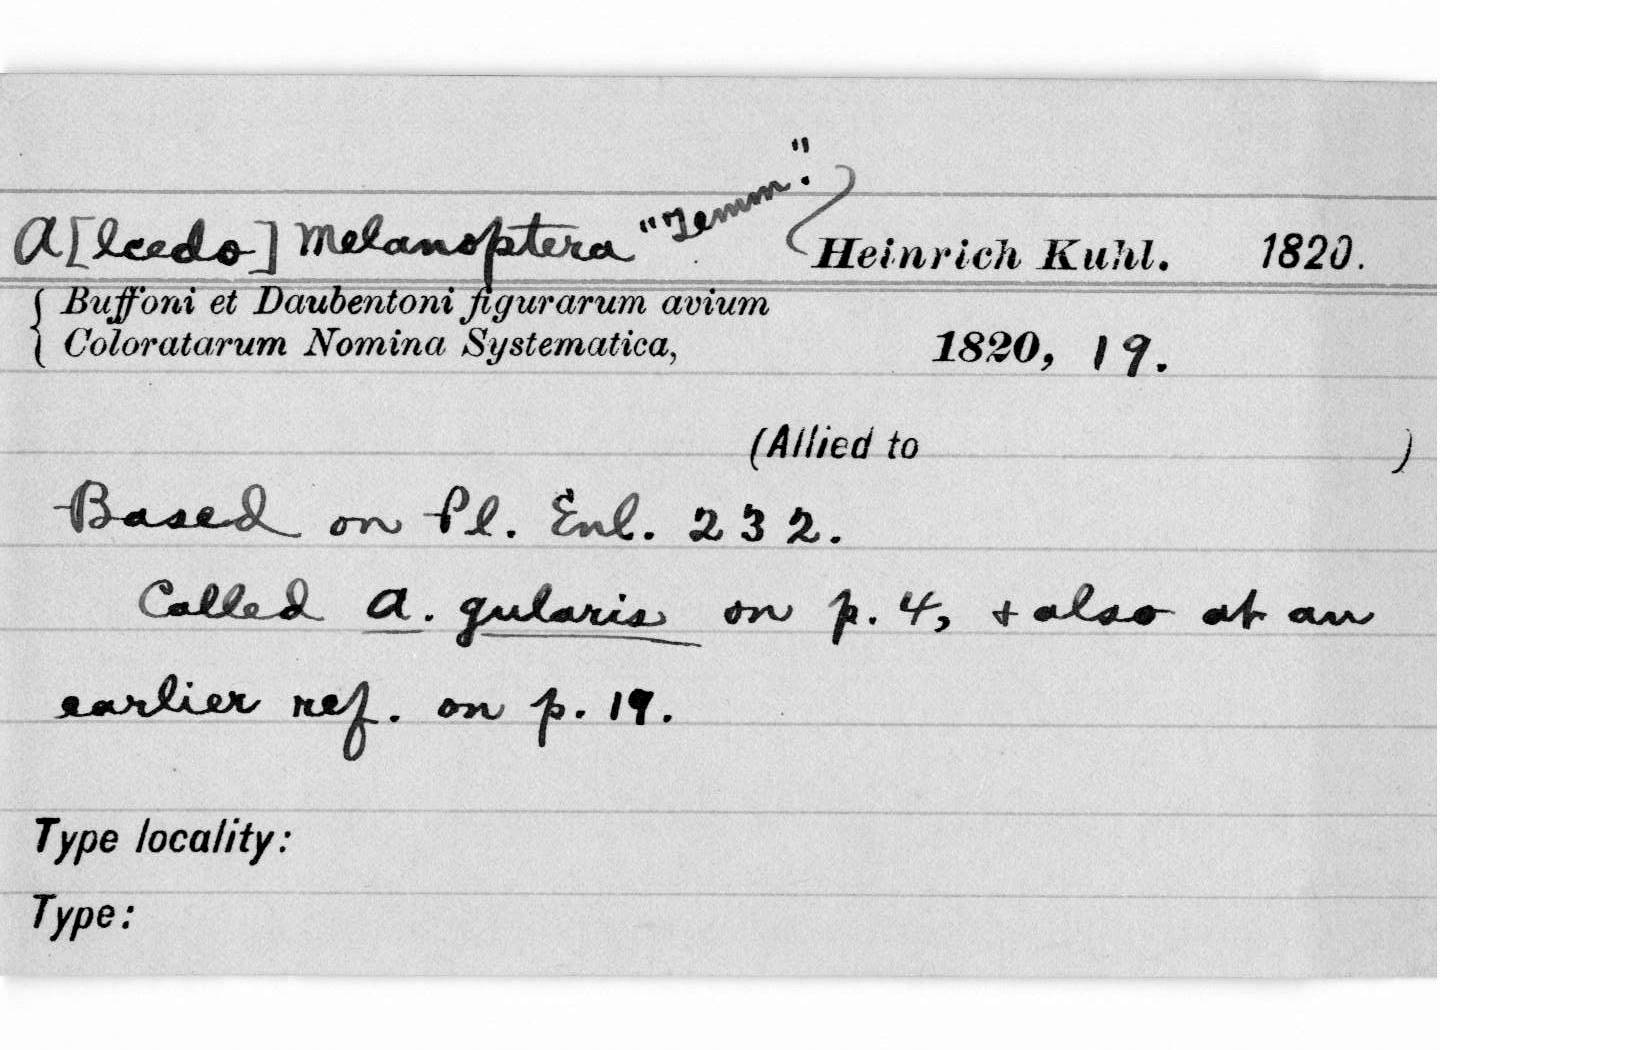 A[lcedo] melanoptera "Temm." Heinrich Kuhl. 1820.
Buffoni et Daubentoni figurarum avium
Coloratarum Nomina Systematica, 1820, 19.
(Allied to )
Based on Pl. Enl. 232.
Called A. gularis on p. 4, + also at an
earlier ref. on p. 19.
Type locality:
Type: